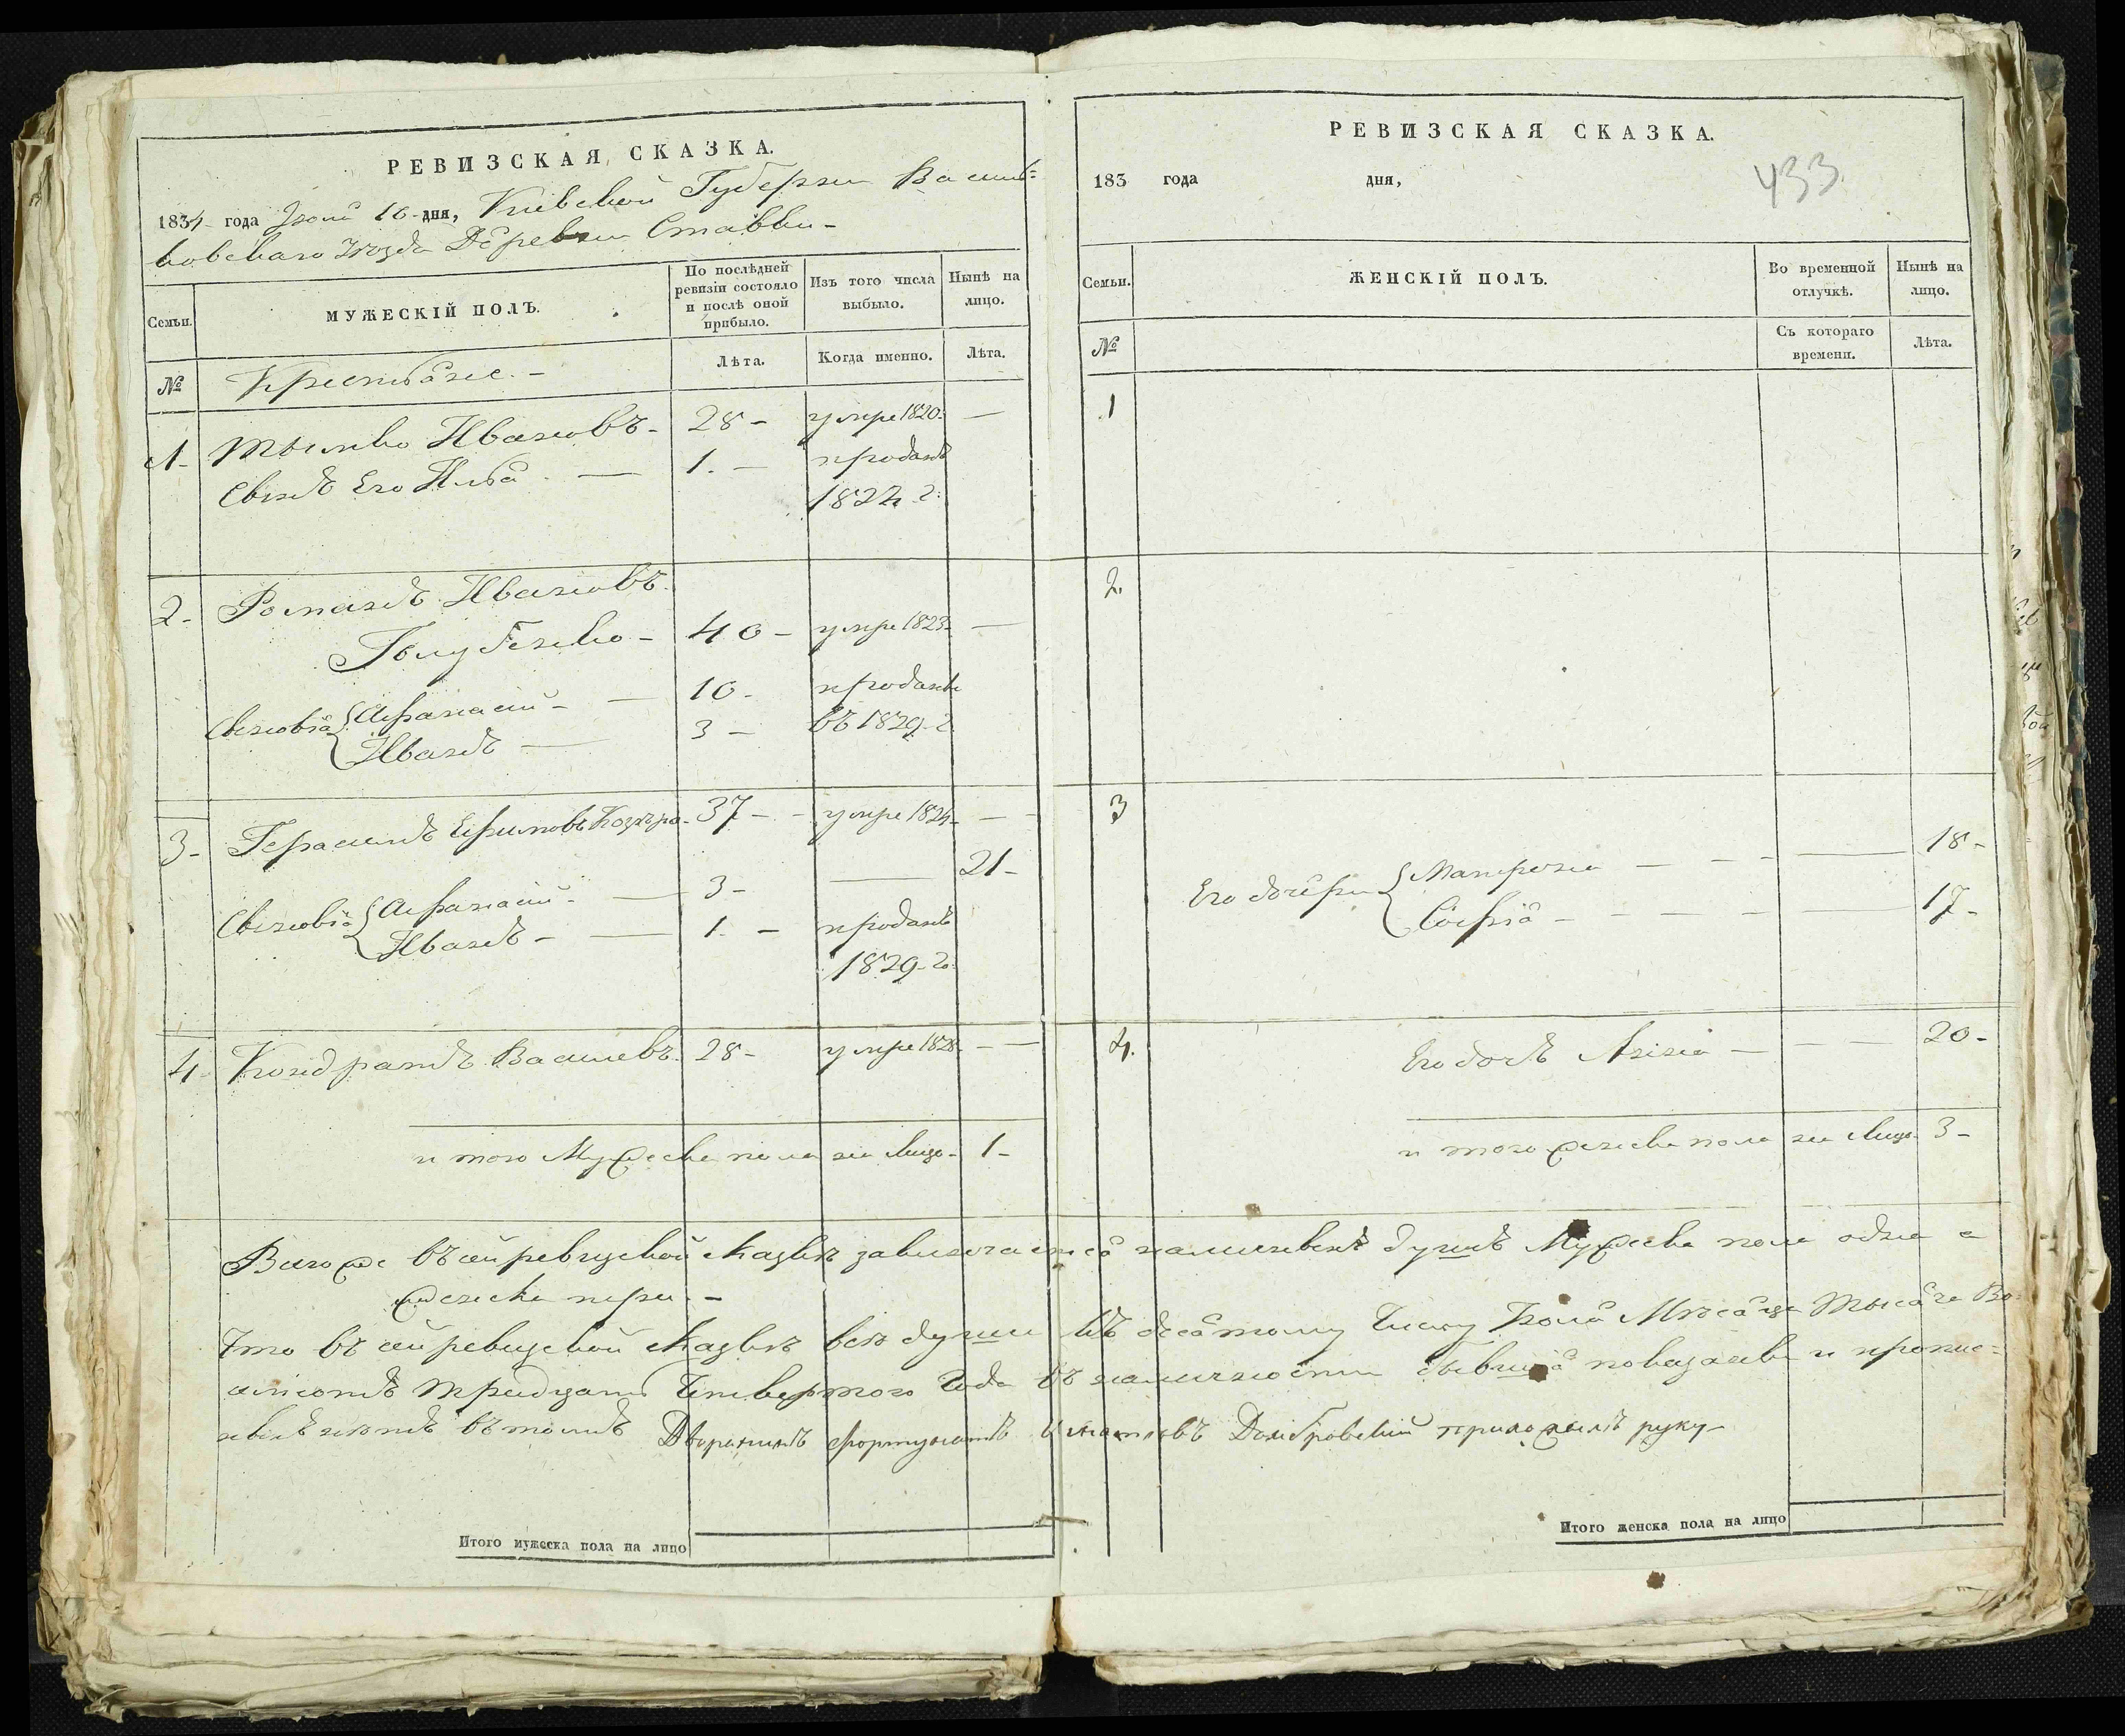 РЕВИЗСКАЯ СКАЗКА.
1834 года Іюня 10 дня, Кіевской Губерніи Василь=
ковскаго уѣзда Деревни Ставки
Семьи.
МУЖЕСКІЙ ПОЛЪ.
По послѣдней ревизіи состояло и послѣ оной прибыло.
Изъ того числа выбыло.
Нынѣ на лицо.
№
Крестьяне.
Лѣта.
Когда именно.
Лѣта.
1 Тымко Ивановъ 28 умре 1820
Сынъ Его Илья 1. проданъ
1824 г:
2 Романъ Ивановъ
Голубенко 40 умре 1823
Сыновья Афанасій 10 проданы
Иванъ 3 въ 1829 г.
3 Герасимъ Ефимовъ 37 умре 1824
Сыновья Афанасій 3 21
Иванъ 1. проданъ
1829 го:
4 Кондратъ Васильевъ 28 умре 1828
и того Мужеска пола на Лицо 1
Итого мужеска пола на лицо
РЕВИЗСКАЯ СКАЗКА.
433
183 года дня,
Семьи.
ЖЕНСКІЙ ПОЛЪ.
Во временной отлучкѣ.
Нынѣ на лицо.
№
Съ котораго времени.
Лѣта.
1
2.
3
Его дочери Матрона 18
Софія 17
4. Его дочь Анна 20
и того женска пола на Лицо 3
Всего же въ сей ревизской сказкѣ заключается наличныхъ душъ Мужеска пола одна а
женска три
Что въ сей ревизской сказкѣ всѣ души къ десятому Числу Іюня Мѣсяца Тысяча Во=
симсотъ тридцать Четвертого Года въ наличности бывшія показаны и пропис=
ныхъ нѣтъ въ томъ Дворянинъ Фортунатъ Домбровскій приложилъ руку
Итого женска пола на лицо